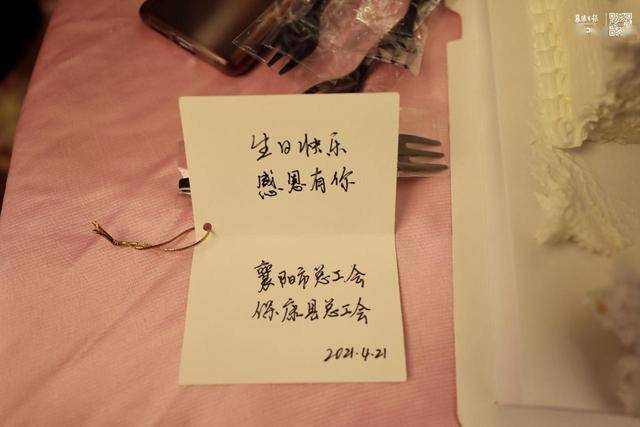 生日快乐
感恩有你
襄阳市总工会
保康县总工会
2021.4.21